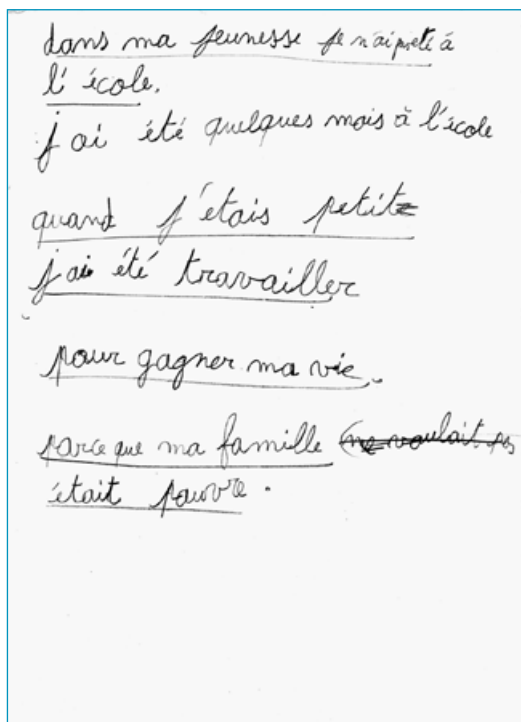 dans ma jeunesse je n'ai été à
l'école.
j'ai été quelques mois à l'école
quand j'étais petit
j'ai été travailler
pour gagner ma vie.
parce que ma famille (ne voulait pas
était pauvre.